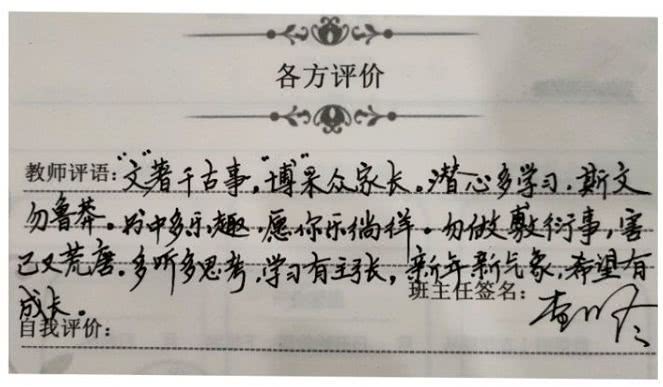 各方评价
教师评语:“文”著千古事,“博”采众家长。潜心多学习,斯文
勿鲁莽。书中多乐趣,愿你乐徜徉。勿做敷衍事,害
己又荒唐。多听多思考,学习有主张,新年新气象,希望有
班主任签名:
成长。
自我评价: